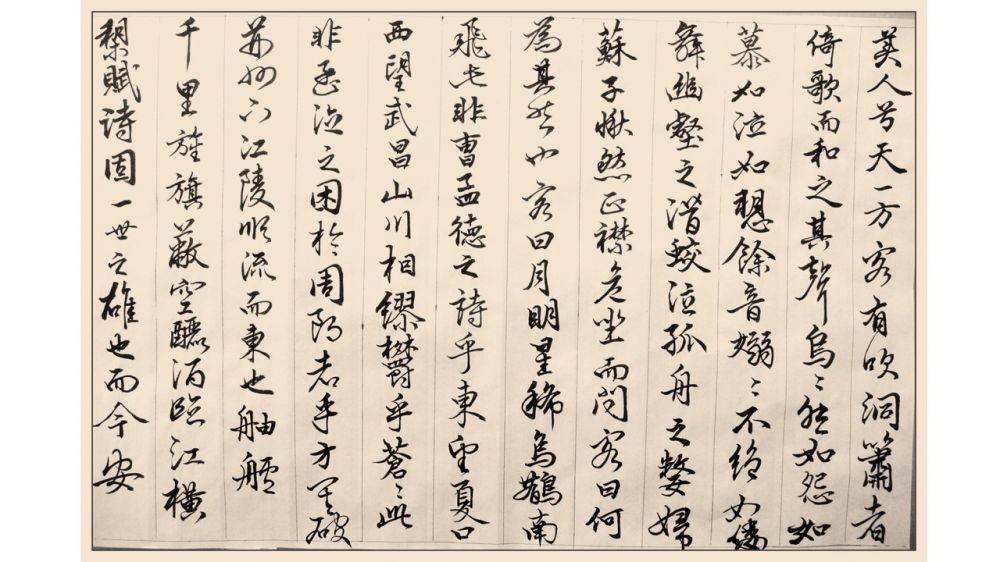 美人兮天一方客有吹洞簫者
倚歌而和之其聲烏〻然如怨如
慕如泣如愬餘音嫋〻不絕如縷
舞幽壑之潛蛟泣孤舟之嫠婦
蘇子愀然正襟危坐而問客曰何
為其然也客曰月明星稀烏鵲南
飛此非曹孟德之詩乎東望夏口
西望武昌山川相繆鬱乎蒼〻此
非孟德之困於周郎者乎方其破
荊州下江陵順流而東也舳艫
千里旌旗蔽空釃酒臨江橫
槊賦詩固一世之雄也而今安